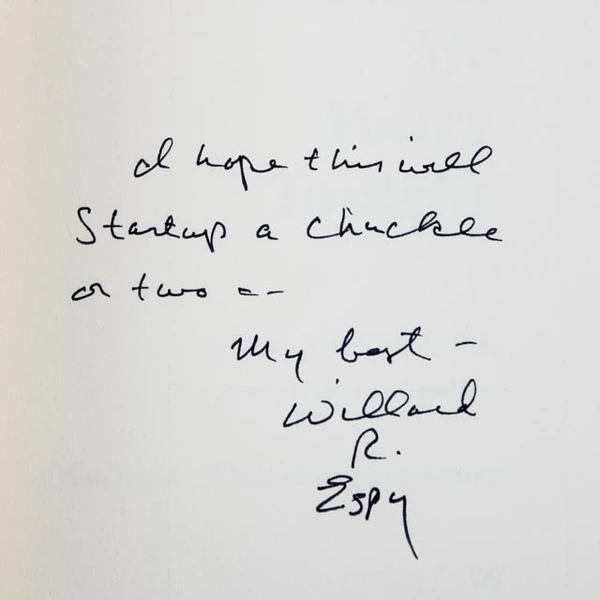 I hope this will
Start up a chuckle
or two --
My best -
Willard
R.
Espy